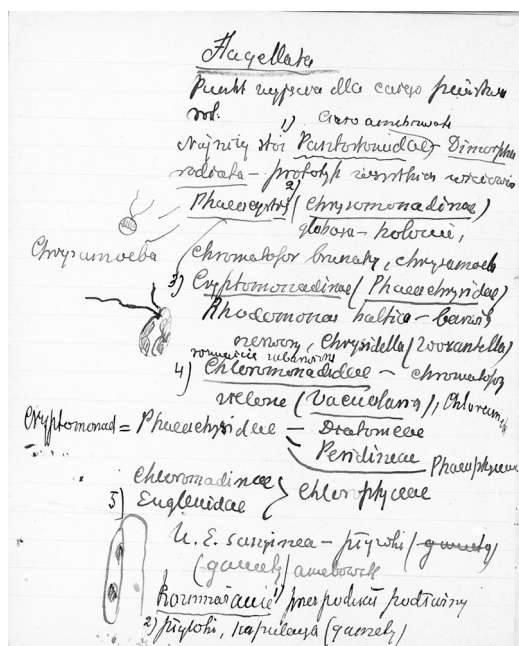 Flagellata
Punkt wyjścia dla całego państwa
rośl.
1) Ciało
Najniżej stoi Pantostomatidae, Dimorpha
radiata – prototyp wszystkich
2)
Phaeocystis (Chrysomonadinae)
globosa – kolonie,
Chrysamoeba
Chromatofor brunatny, chrysamoeb
3) Cryptomonadinae (Phaeochrysidae)
Rhodomonas baltica – barwi
Chrysidella (Zooxantella)
4) Chloromonadidae – chromatofory
zielone (Vacuolaria),
Cryptomonad = Phaeochrysidae – Diatomeae
Peridineae Phaeophyceae
Chloromadinae
5) Euglenidae } Chlorophyceae
U. E. sanginea – (gamety)
(gamety)
Rozmnażanie 1) przez podział podłużny
2) (gamety)